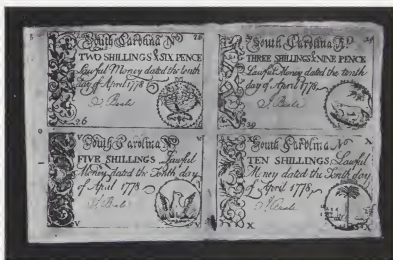 South Carolina No
TWO SHILLINGS & SIX PENCE
Lawful Money dated the tenth
day of April 1778
26
South Carolina No
THREE SHILLINGS & NINE PENCE
Lawful Money dated the tenth
day of April 1778
39
V South Carolina No V
FIVE SHILLINGS Lawful
Money dated the Tenth day
of April 1778
V V
South Carolina No X
TEN SHILLINGS Lawful
Money dated the Tenth day
of April 1778
X X